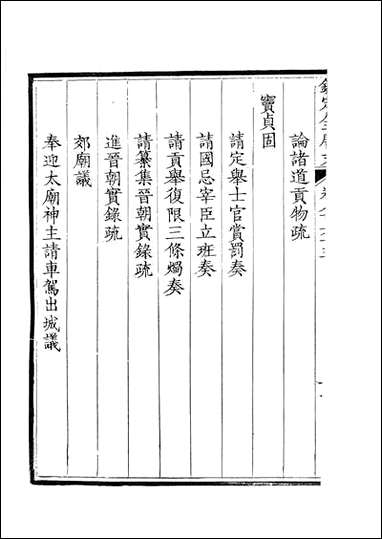 論諸道貢物疏
竇貞固
請定舉士官賞罰奏
請國忌宰臣立班奏
請貢舉復限三條燭奏
請纂集晉朝實錄疏
進晉朝實錄疏
郊廟議
奉迎太廟神主請車駕出城議